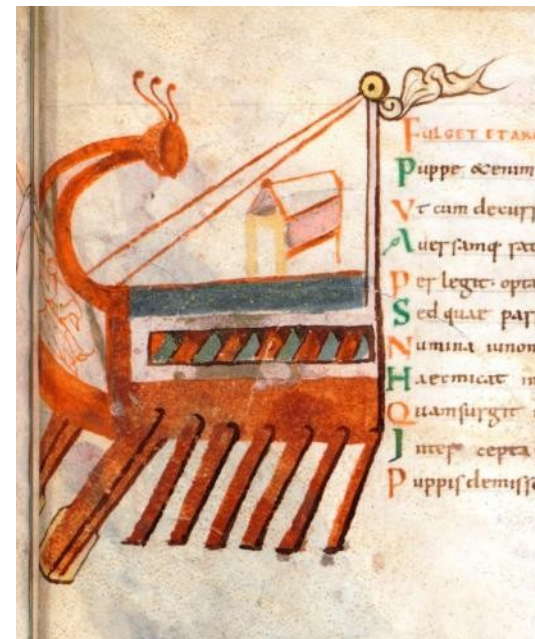 FULGET ET AR
Puppe & enim
Vt cum decurr
Auersamq; rat
Perlegit. opta
Sed quae par
Numina iunon
Haec micat in
Quam surgit
Inter cepta
Puppis demiss